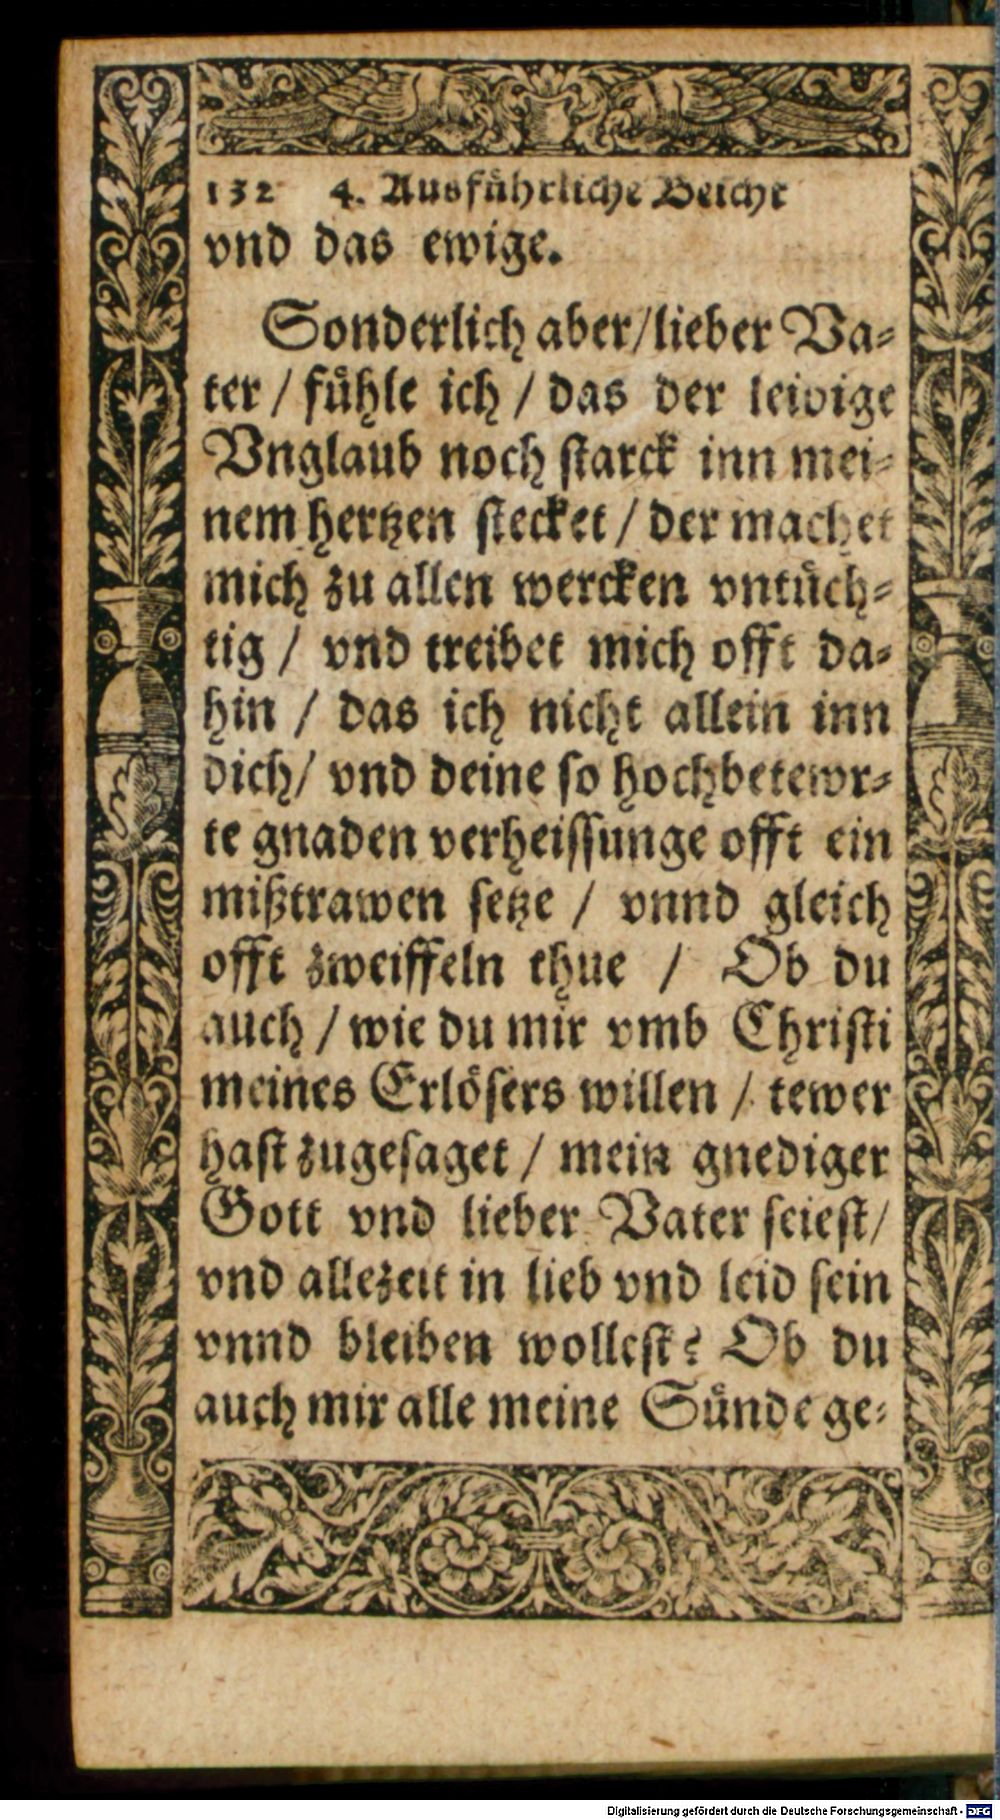 132 4. Ausführliche Beicht
vnd das ewige.
Sonderlich aber/lieber Va-
ter / fühle ich / das der leidige
Vnglaub noch starck inn mei-
nem hertzen stecket / der machet
mich zu allen wercken vntüch-
tig / vnd treibet mich offt da-
hin / das ich nicht allein inn
dich/ vnd deine so hochbetewr-
te gnaden verheissunge offt ein
mißtrawen setze / vnnd gleich
offt zweiffeln thue / Ob du
auch / wie du mir vmb Christi
meines Erlösers willen / tewer
hast zugesaget / mein gnediger
Gott vnd lieber Vater seiest/
vnd allezeit in lieb vnd leid sein
vnnd bleiben wollest? Ob du
auch mir alle meine Sünde ge-
Digitalisierung gefördert durch die Deutsche Forschungsgemeinschaft - DFG